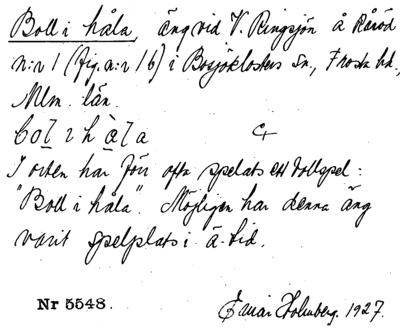 Boll i håla, äng vid V. Ringsjön å Råröd
n:r 1 (fig. a:r 16) i Bosjöklosters sn., Frosta hd.,
Mlm. län.
I orten har förr ofta spelats ett bollspel:
"Boll i håla". Möjligen har denna äng
varit spelplats i ä. tid.
Nr 5548.
Einar Holmberg. 1927.